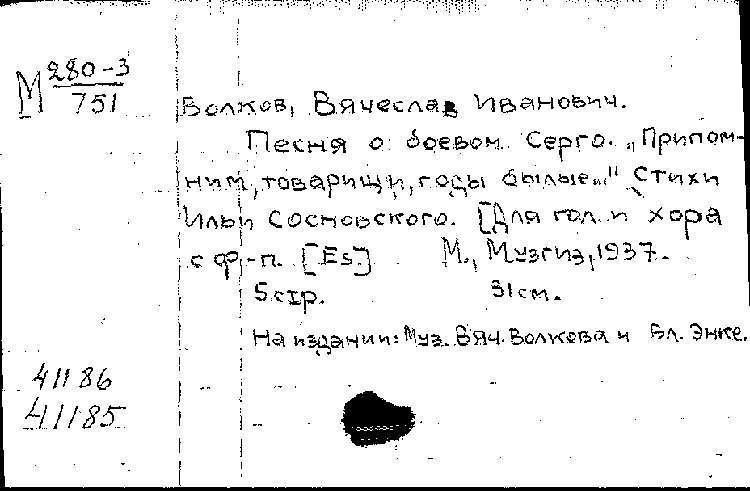 М 280-3
751
Волков, Вячеслав Иванович.
Песня о боевом Серго. „Припом-
ним, товарищи, годы былые..." Стихи
Ильи Сосновского. [Для гол. и хора
с ф.-п. [Es]   М., Музгиз, 1937.
5 стр.   31 см.
На издании: Муз. Вяч. Волкова и Вл. Энке.
41186
41185